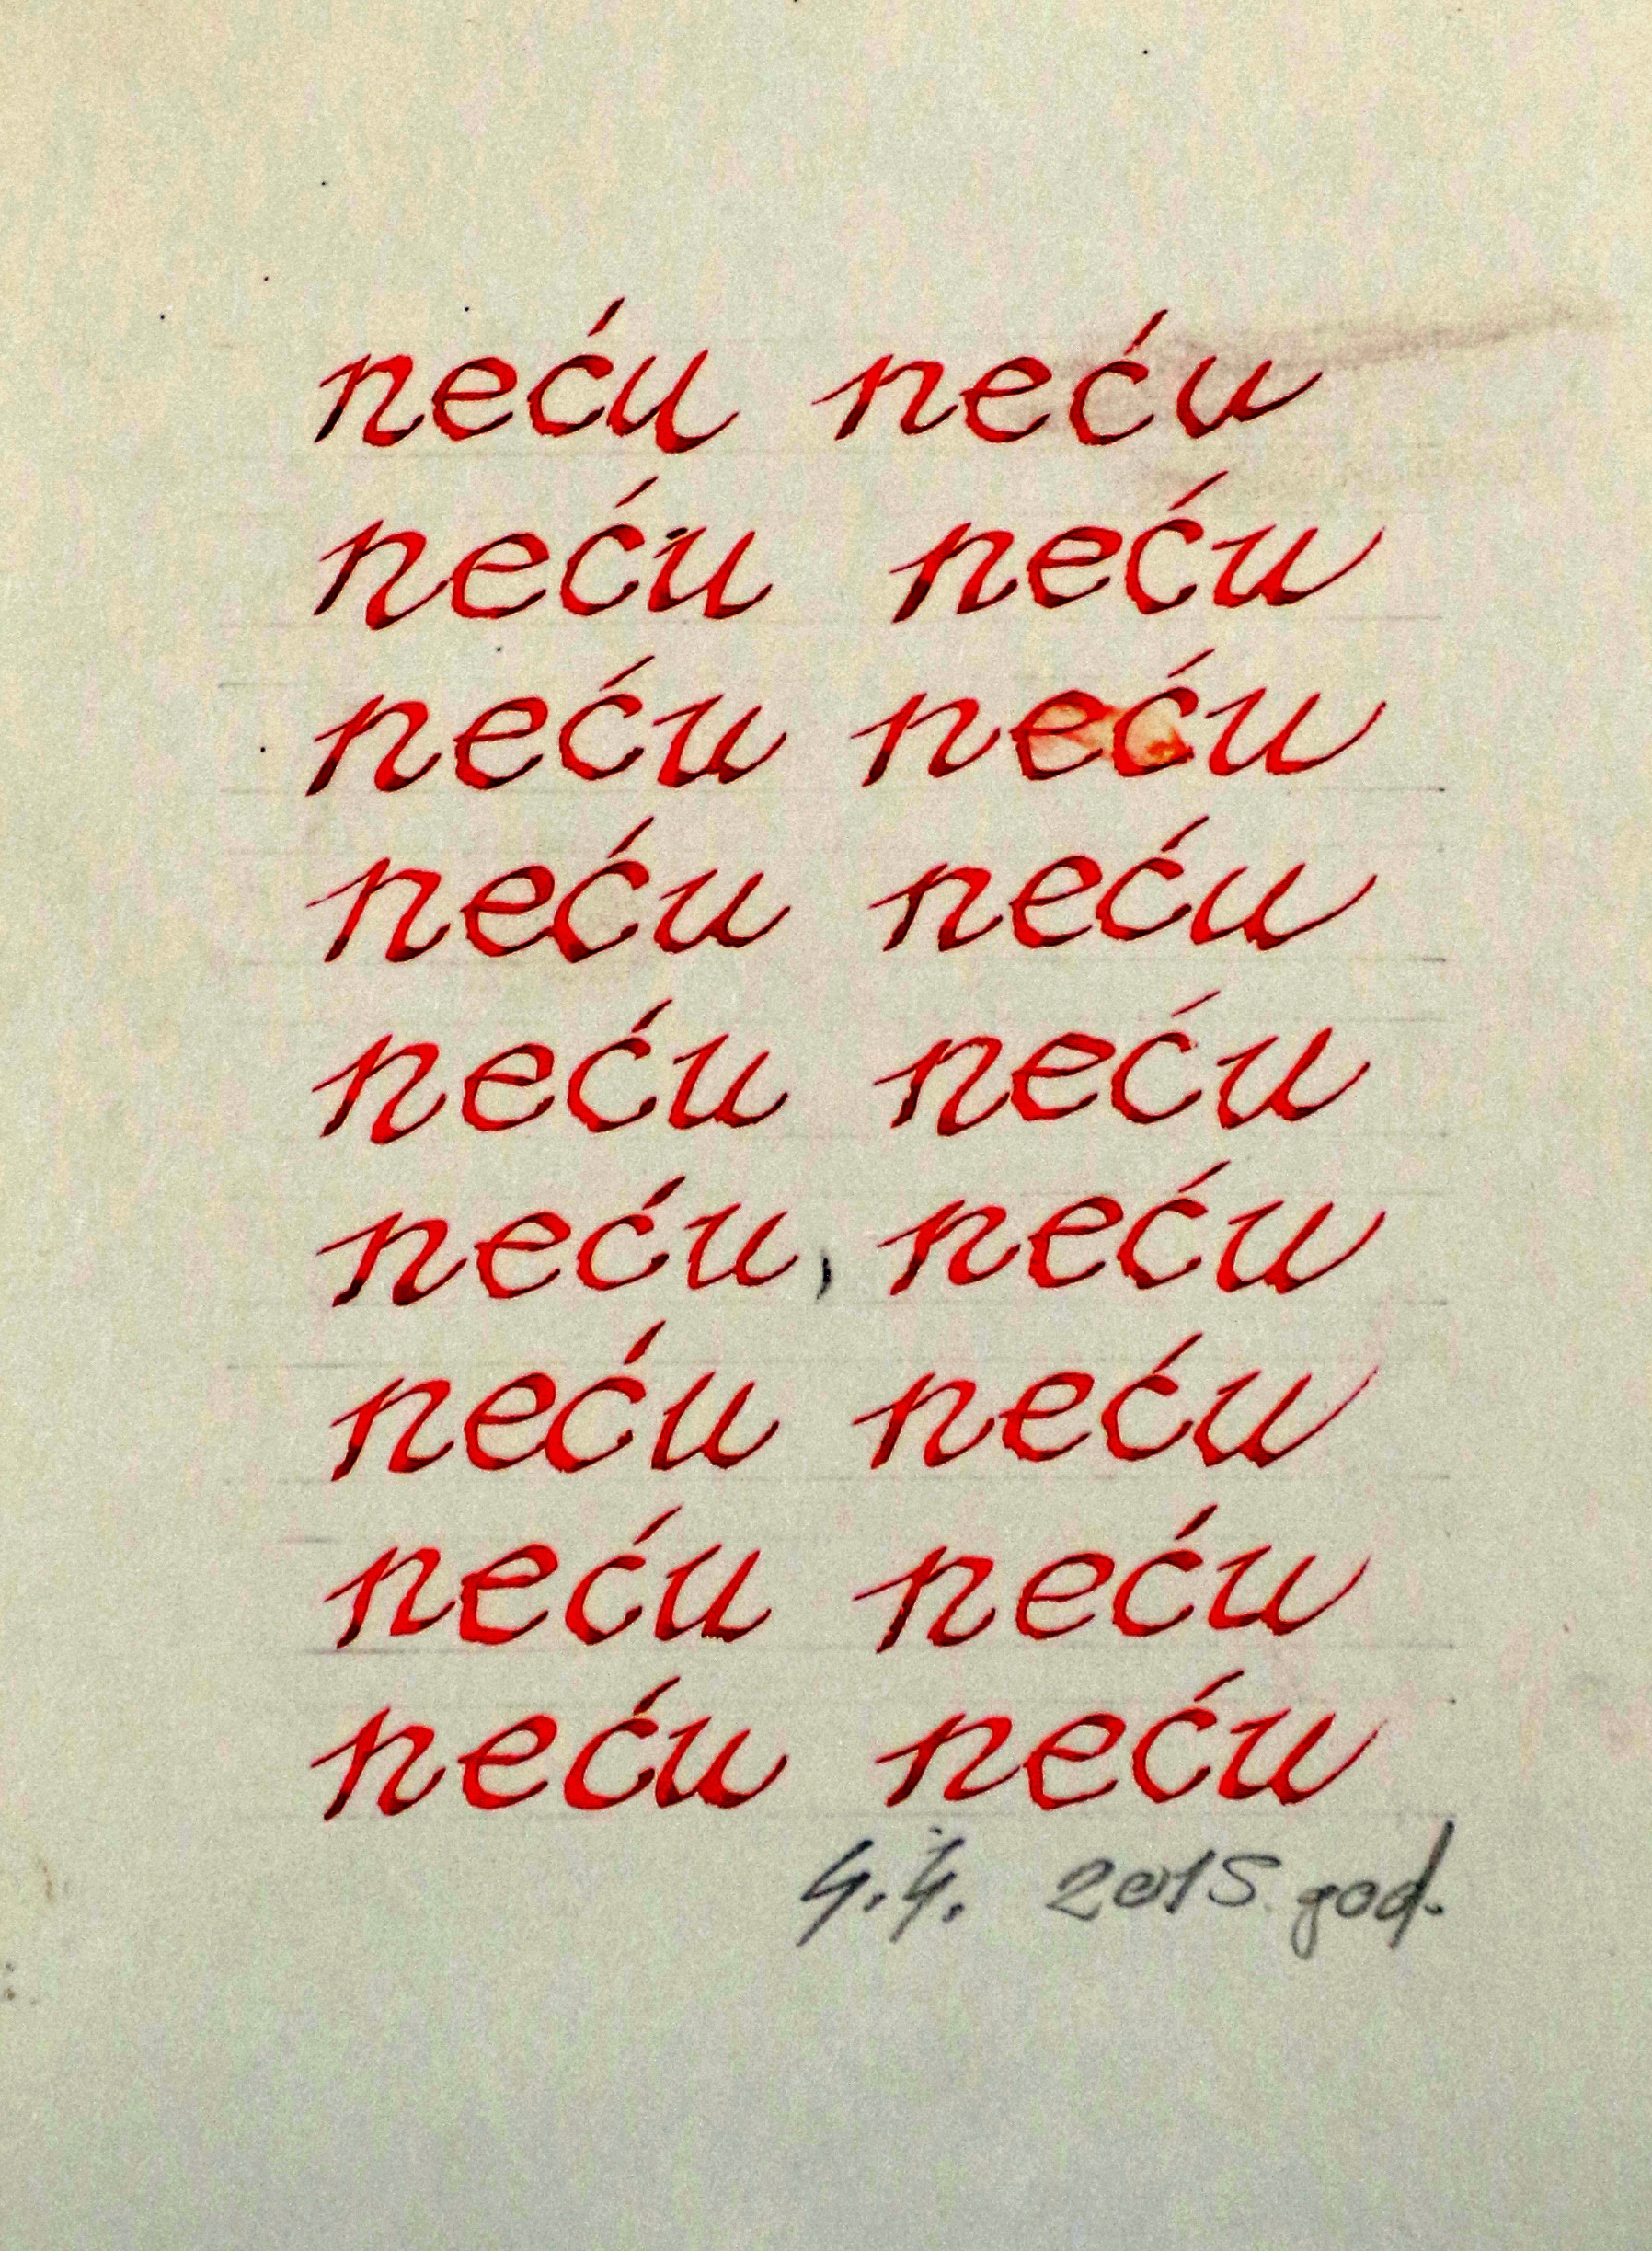 neću neću
neću neću
neću neću
neću neću
neću neću
neću, neću
neću neću
neću neću
neću neću
4.4. 2015. god.